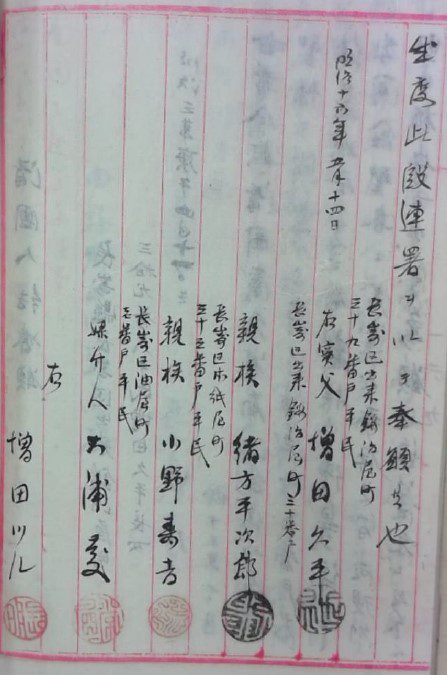 生度此段連署ヲ以テ奉願候也
明治十六年五月十四日
長崎区出来鍛冶屋町
三十九番戸平民
右実父 増田久平
長崎区出来鍛冶屋町三十番戸
親族 緒方平次郎
長崎区本紙屋町
三十三番戸平民
親族 小野寿吉
長崎区油屋町
三番戸平民
媒介人 大浦慶
右
増田ツル